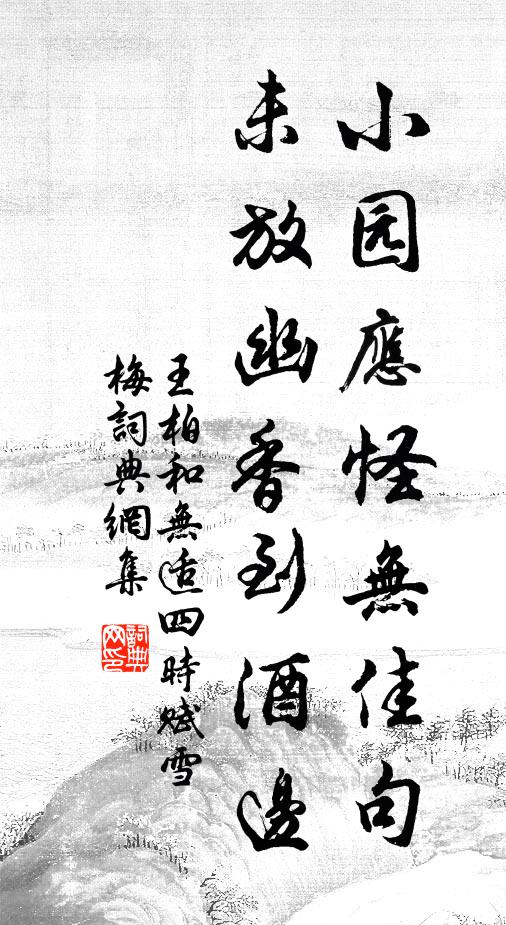 小园應怪無佳句
未放幽香到酒邊
王柏和無适四時賦雪
梅詞典網集
詞典网印